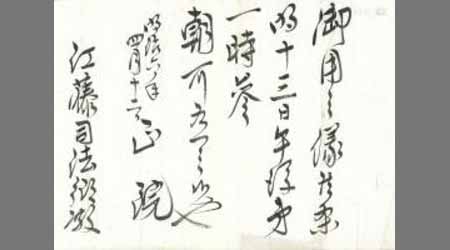 御用之儀条
明十三日午後第
一時参
朝可有之候也
明治六年
四月十二日
正院
江藤司法卿殿